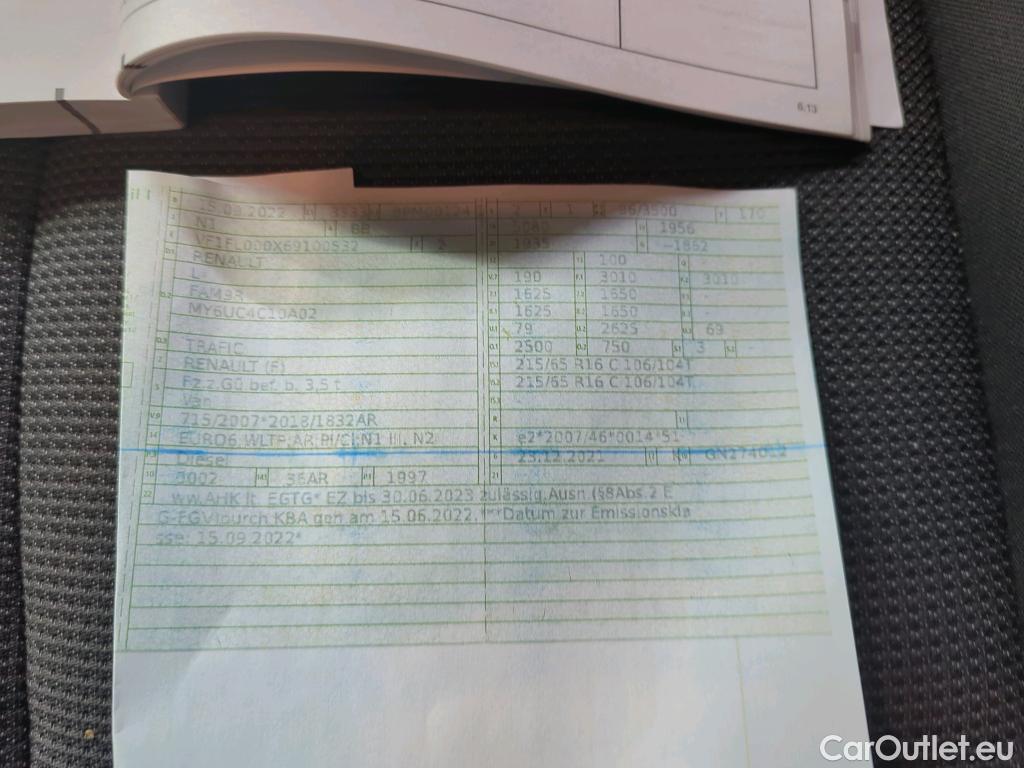 6.13
15.09.2022 3333 2 1 96/3500 170
N1 BB 5080 1956
VF1FL000X69100532 2 1935 —1862
RENAULT 100 -
L 190 3010 3010
FAM3R 1625 1650 -
MY6UC4C10A02 1625 1650 -
79 2625 69
TRAFIC 2500 750 3 -
RENAULT (F) 215/65 R16 C 106/104T
Fz.z.Gü bef. b. 3,5 t 215/65 R16 C 106/104T
Van
715/2007*2018/1832AR
EURO6 WLTP;AR;PI/CI;N1 III, N2 e2*2007/46*0014*51
Diesel 23.12.2021 K
0002 36AR 1997
ww.AHK lt. EGTG* EZ bis 30.06.2023 zulässig,Ausn.(§8Abs.2 E
G-FGV)durch KBA gen am 15.06.2022.***Datum zur Emissionskla
sse: 15.09.2022*
CarOutlet.eu